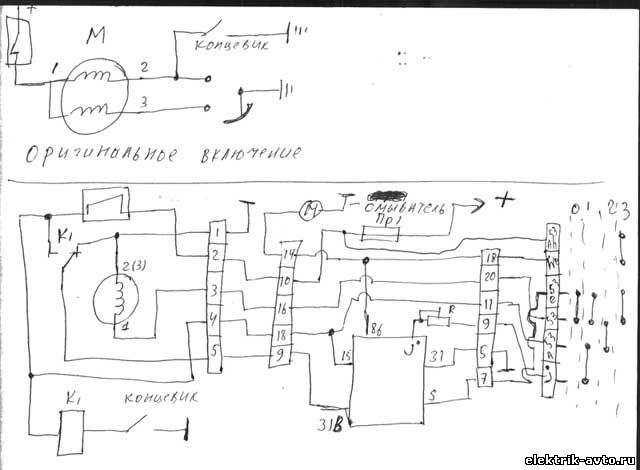 +
M
1 2
3
концевик
Оригинальное включение
K1
2(3)
1
1
2
3
4
5
K1 концевик
M
омыватель
Пр1
+
14
10
16
18
9
15
86
31В
J
R
31
S
18
20
11
9
5
7
0 1 2 3
elektrik-avto.ru